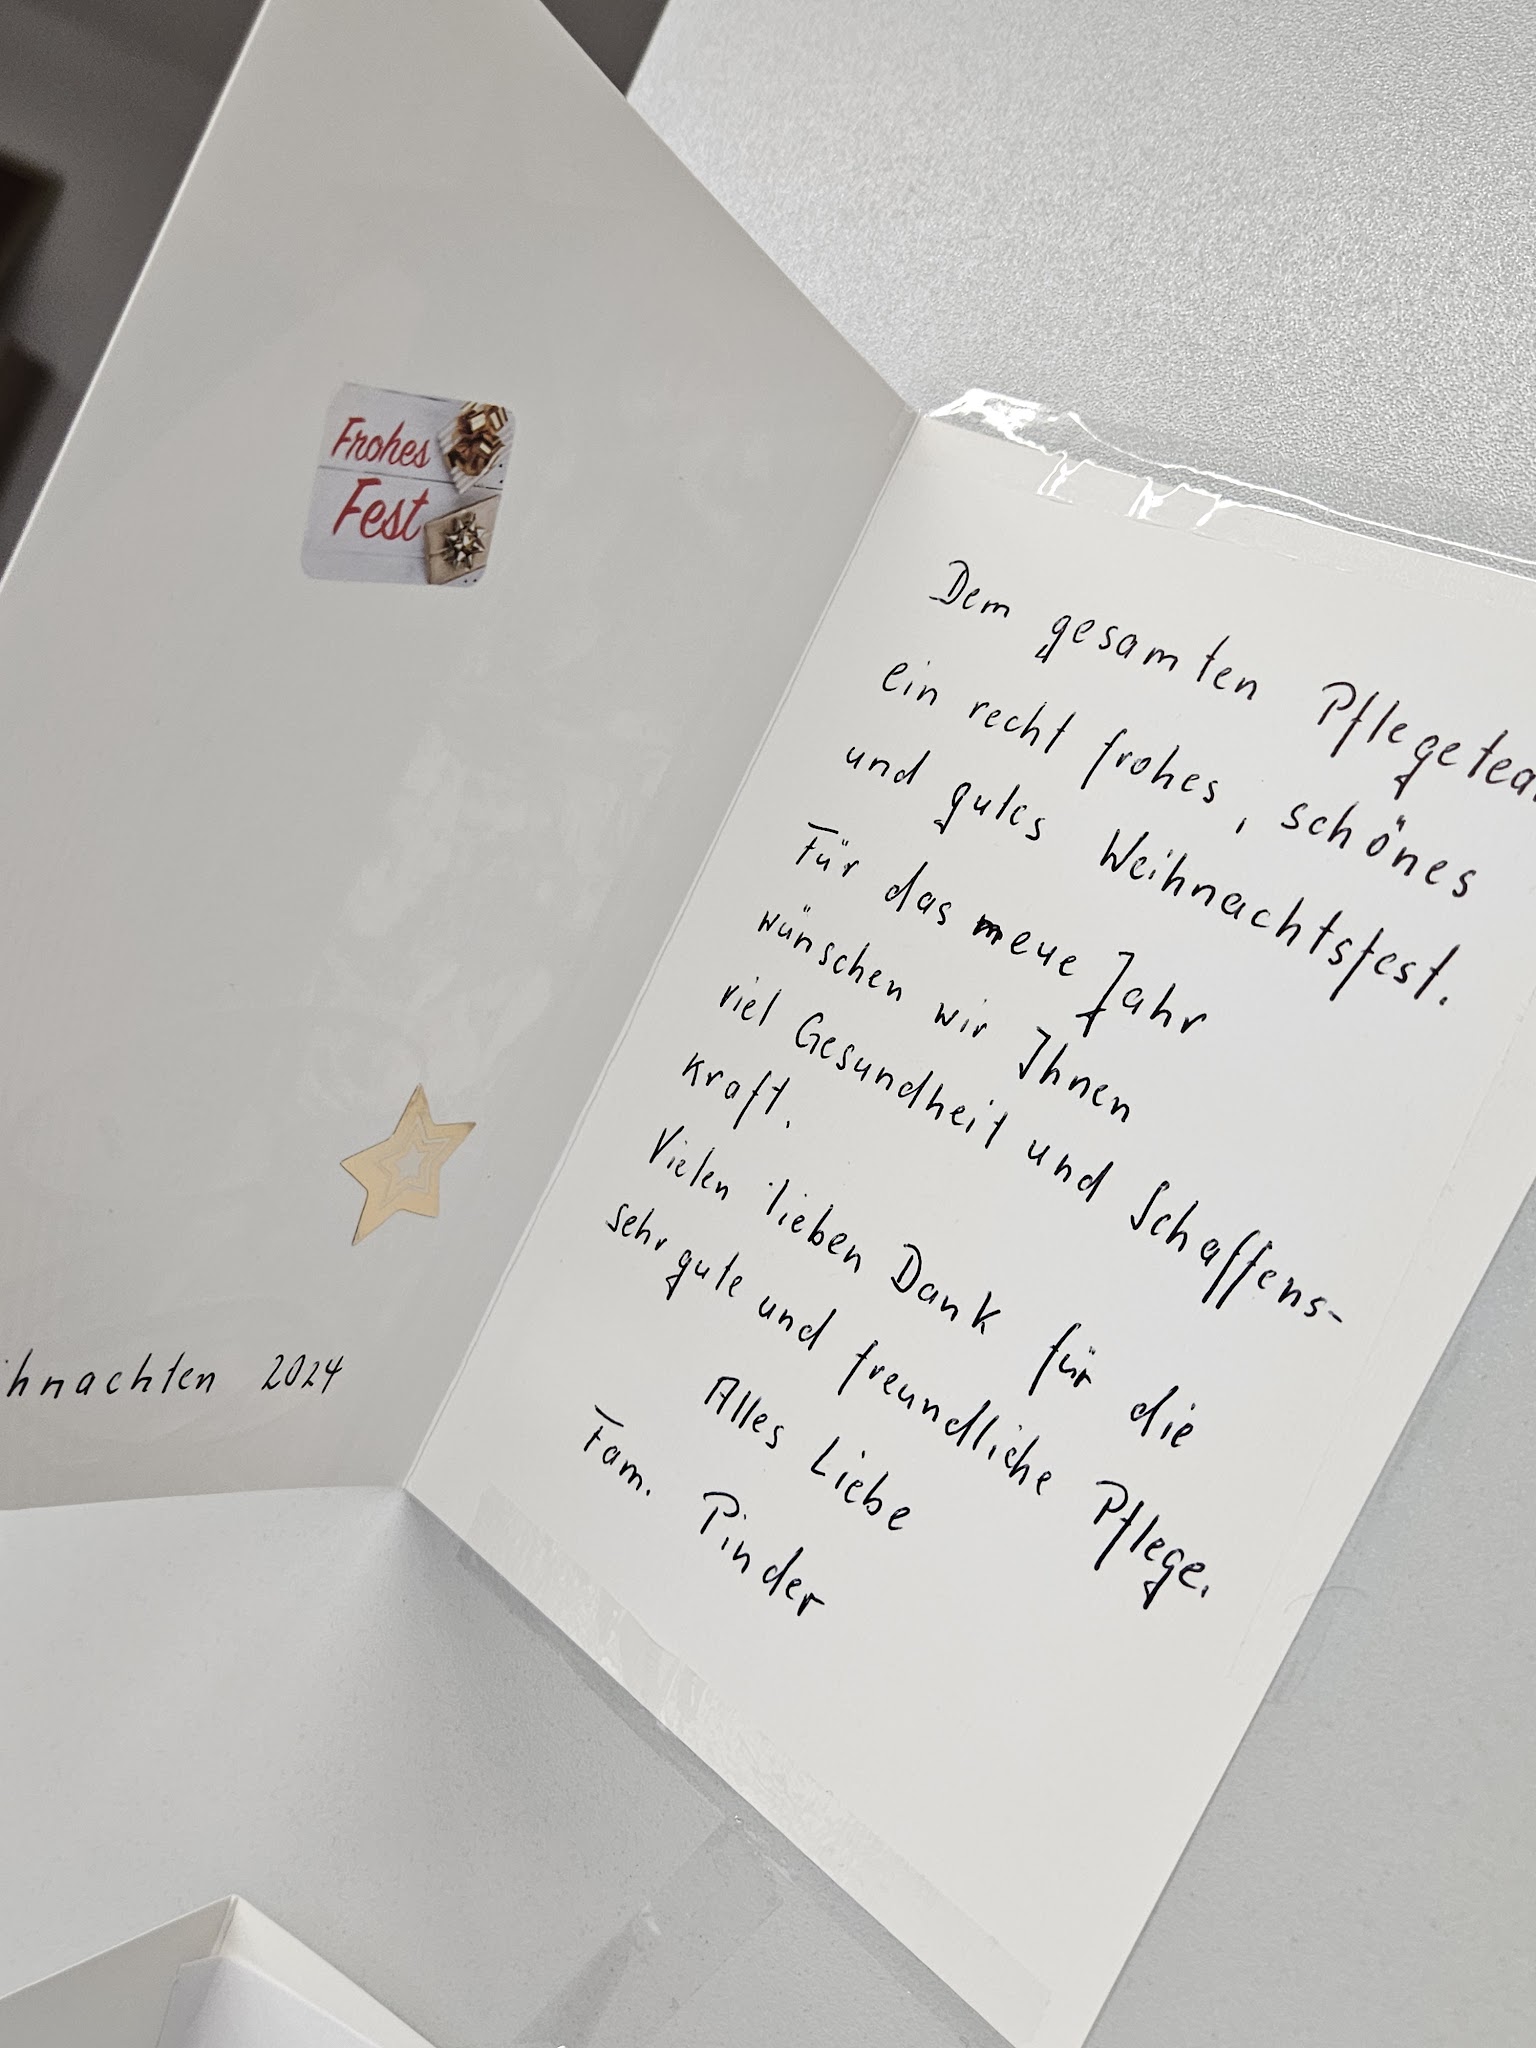 Frohes
Fest
hnachten 2024
Dem gesamten Pflegetea
ein recht frohes, schönes
und gutes Weihnachtsfest.
Für das neue Jahr
wünschen wir Ihnen
viel Gesundheit und Schaffens-
kraft.
Vielen lieben Dank für die
sehr gute und freundliche Pflege.
Alles Liebe
Fam. Pinder